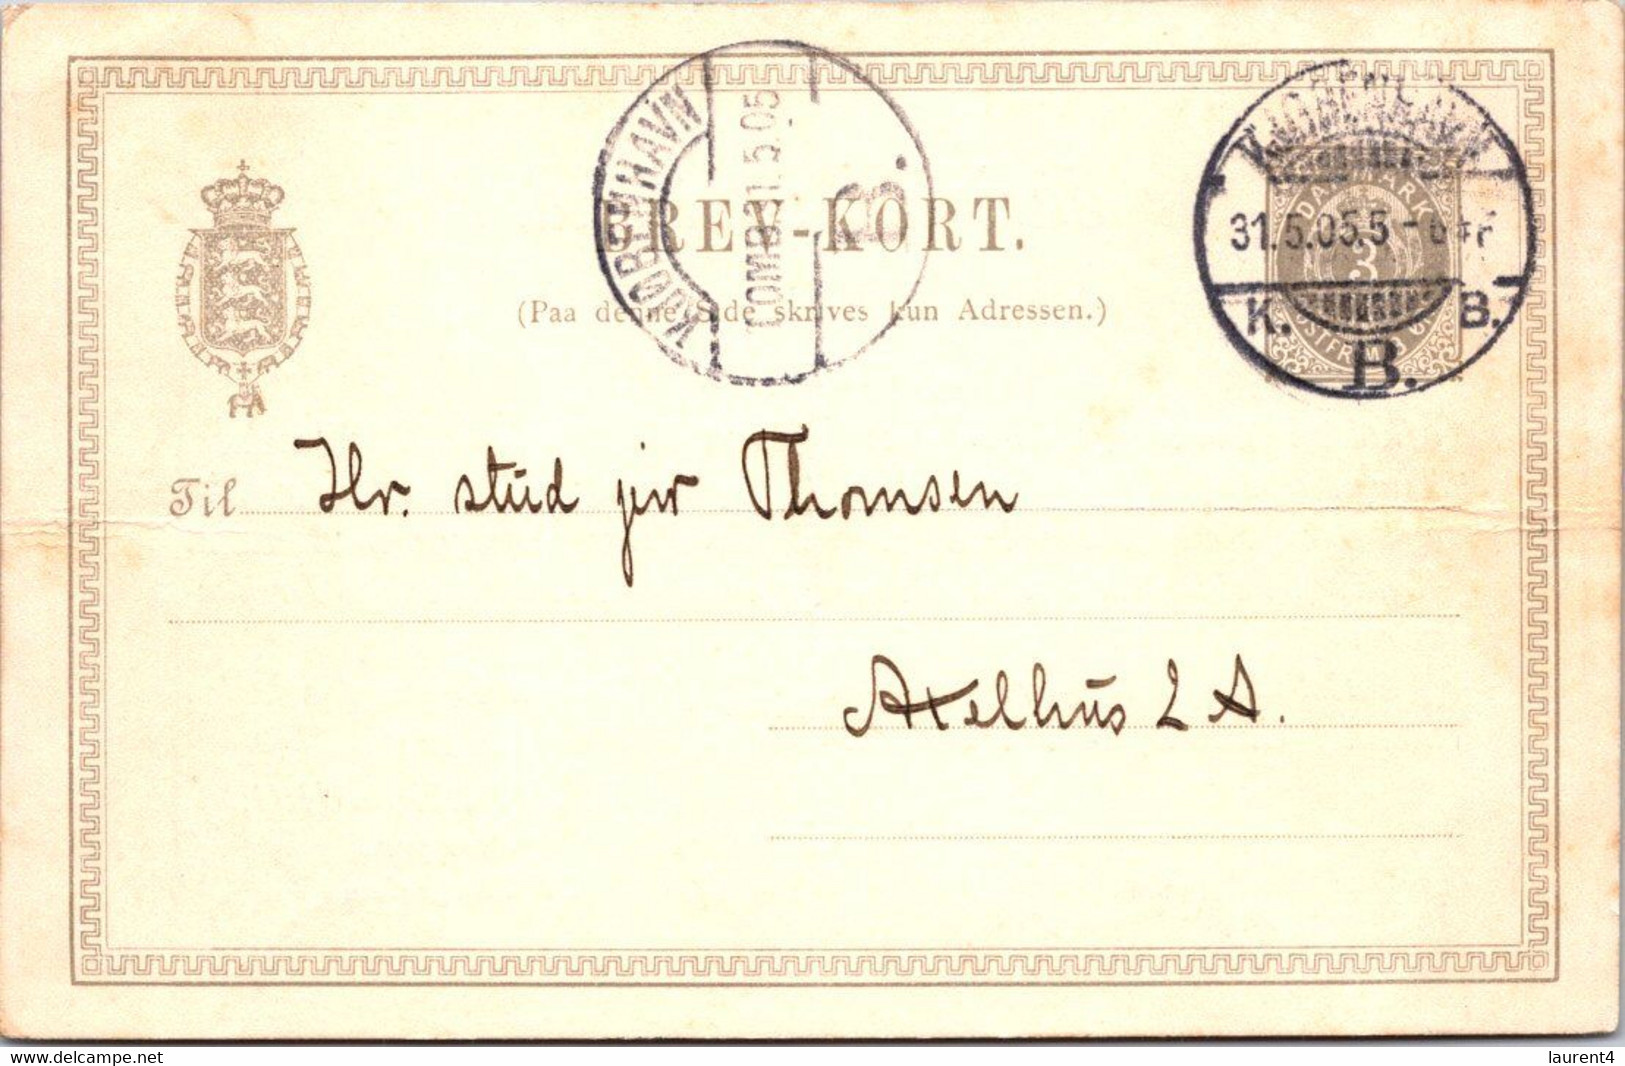 KJØBENHAVN
OMB.31.5.05
B.
KJØBENHAVN
31.5.05.5-6
K. B.
B.
DANMARK
3
POSTFRIM
BREV-KORT.
(Paa denne Side skrives kun Adressen.)
Til Hr. stud jur Thomsen
Axelhus 2 A.
www.delcampe.net
laurent4